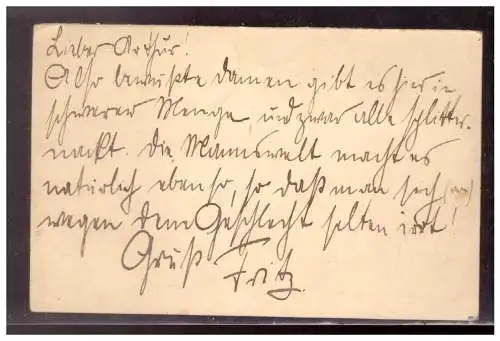 Lieber Arthur!
Also bewußte Damen gibt es hier in
schwerer Menge, und zwar alle splitter-
nackt. Die Mannswelt macht es
natürlich ebenso, so daß man sich
wegen dem Geschlecht selten irrt!
Gruß
Fritz.